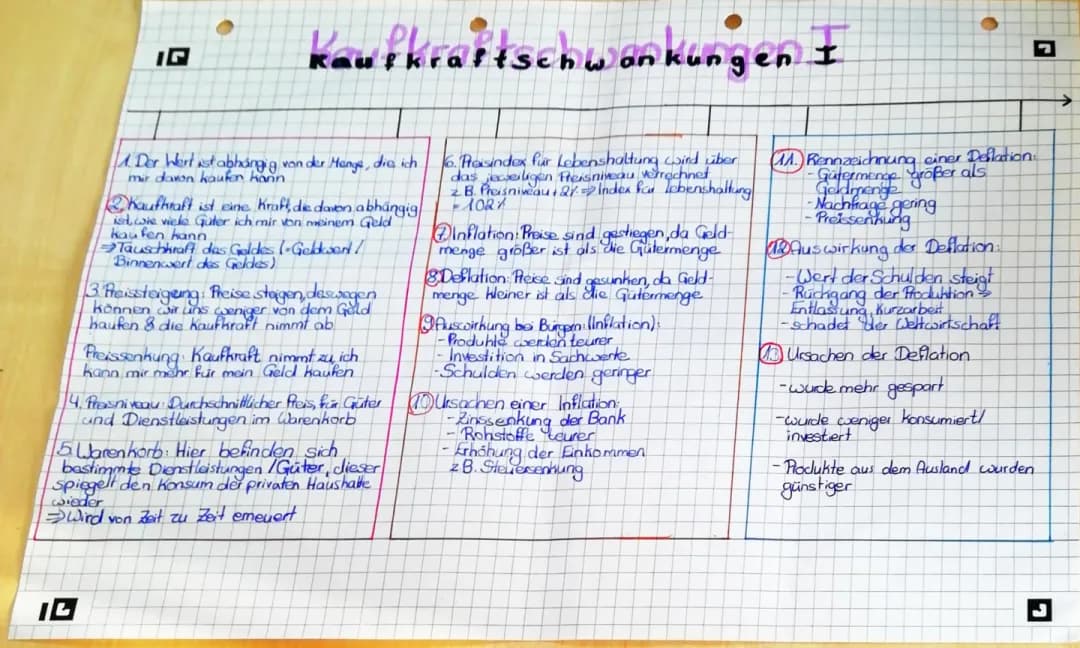 Kaufkraftschwankungen I
1. Der Wert ist abhängig von der Menge, die ich
mir davon kaufen kann
2. Kaufkraft ist eine Kraft, die davon abhängig
ist, wie viele Güter ich mir von meinem Geld
kaufen kann
⇒ Tauschkraft des Geldes (=Geldwert /
Binnenwert des Geldes)
3. Preissteigerung: Preise stegen, deswegen
können wir uns weniger von dem Geld
kaufen & die Kaufkraft nimmt ab
Preissenkung: Kaufkraft nimmt zu, ich
kann mir mehr für mein Geld kaufen
4. Preisniveau: Durchschnittlicher Preis, für Güter
und Dienstleistungen im Warenkorb
5. Warenkorb: Hier befinden sich
bestimmte Dienstleistungen / Güter, dieser
spiegelt den Konsum der privaten Haushalte
wieder
⇒ Wird von Zeit zu Zeit erneuert
6. Preisindex für Lebenshaltung wird über
das jeweiligen Preisniveau verrechnet
z.B. Preisniveau + 2% ⇒ Index für Lebenshaltung
= 102%
7. Inflation: Preise sind gestiegen, da Geld-
menge größer ist als die Gütermenge
8. Deflation: Preise sind gesunken, da Geld-
menge kleiner ist als die Gütermenge
9. Auswirkung bei Bürgern (Inflation):
- Produkte werden teurer
- Investition in Sachwerte
- Schulden werden geringer
10. Ursachen einer Inflation:
- Zinssenkung der Bank
- Rohstoffe teurer
- Erhöhung der Einkommen
z.B. Steuersenkung
11. Kennzeichnung einer Deflation:
- Gütermenge größer als
Geldmenge
- Nachfrage gering
- Preissenkung
12. Auswirkung der Deflation:
- Wert der Schulden steigt
- Rückgang der Produktion ⇒
Entlassung, Kurzarbeit
- schadet der Weltwirtschaft
13. Ursachen der Deflation
- wurde mehr gespart
- wurde weniger konsumiert/
investiert
- Produkte aus dem Ausland wurden
günstiger